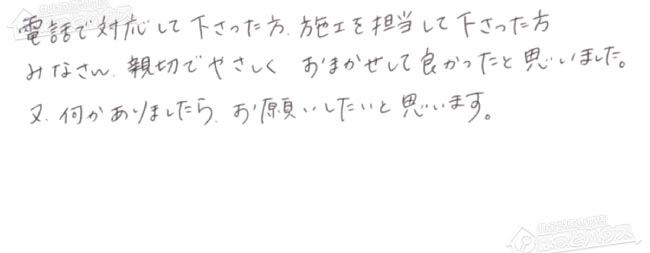 電話で対応して下さった方、施工を担当して下さった方
みなさん、親切でやさしく おまかせして良かったと思いました。
又、何かありましたら、お願いしたいと思います。